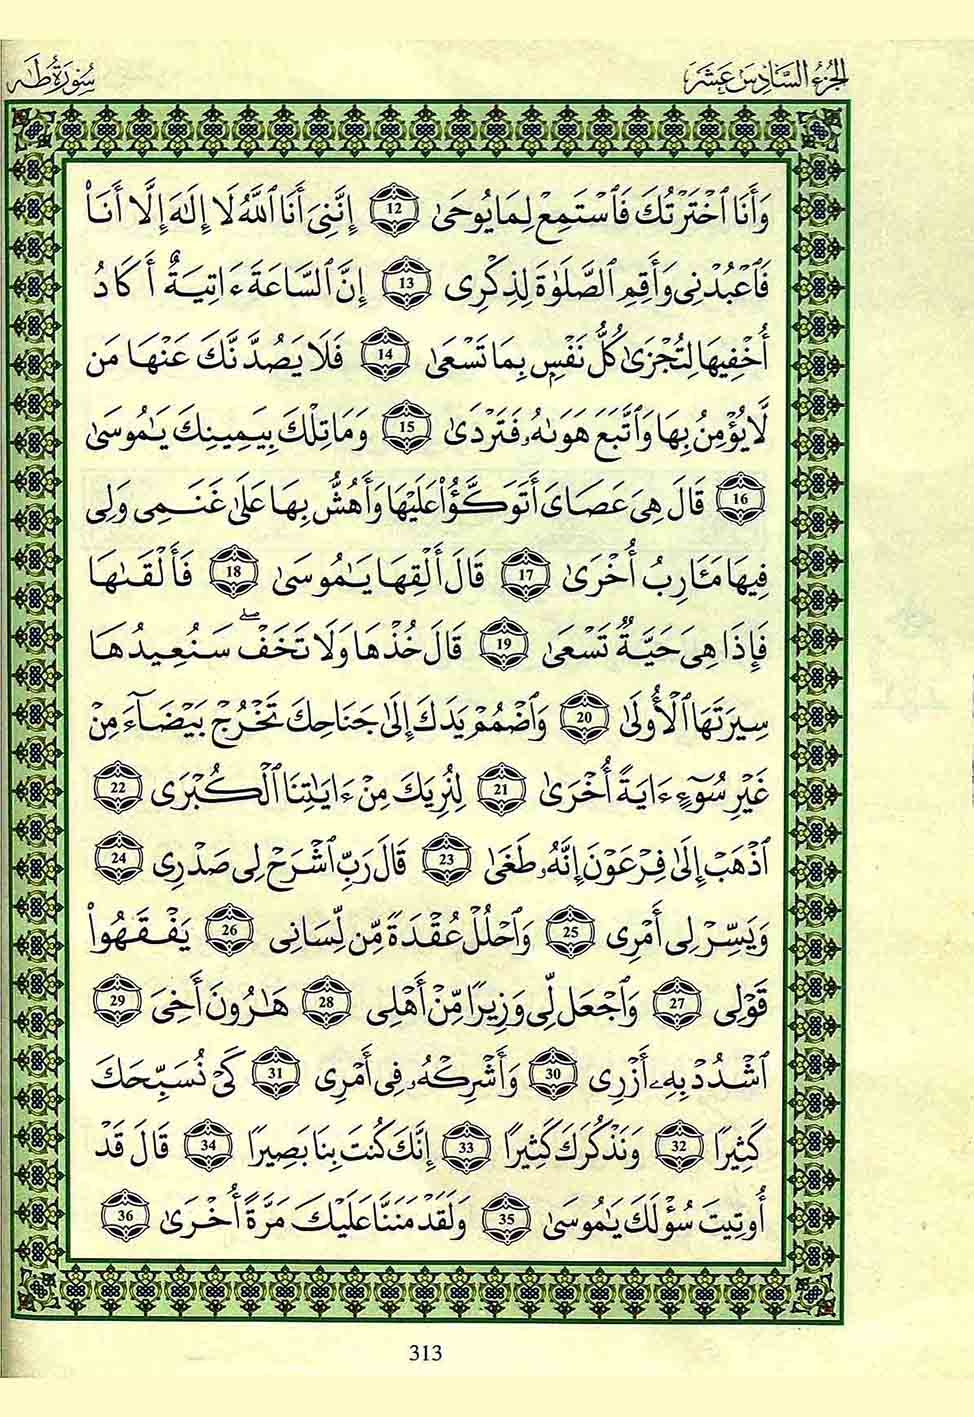 الجزء السادس عشر
سورة طه
وَأَنَا ٱخْتَرْتُكَ فَٱسْتَمِعْ لِمَا يُوحَىٰ 12 إِنَّنِىٓ أَنَا ٱللَّهُ لَآ إِلَـٰهَ إِلَّآ أَنَا۠
فَٱعْبُدْنِى وَأَقِمِ ٱلصَّلَوٰةَ لِذِكْرِىٓ 13 إِنَّ ٱلسَّاعَةَ ءَاتِيَةٌ أَكَادُ
أُخْفِيهَا لِتُجْزَىٰ كُلُّ نَفْسٍۭ بِمَا تَسْعَىٰ 14 فَلَا يَصُدَّنَّكَ عَنْهَا مَن
لَّا يُؤْمِنُ بِهَا وَٱتَّبَعَ هَوَىٰهُ فَتَرْدَىٰ 15 وَمَا تِلْكَ بِيَمِينِكَ يَـٰمُوسَىٰ
16 قَالَ هِىَ عَصَاىَ أَتَوَكَّؤُا۟ عَلَيْهَا وَأَهُشُّ بِهَا عَلَىٰ غَنَمِى وَلِى
فِيهَا مَـَٔارِبُ أُخْرَىٰ 17 قَالَ أَلْقِهَا يَـٰمُوسَىٰ 18 فَأَلْقَىٰهَا
فَإِذَا هِىَ حَيَّةٌ تَسْعَىٰ 19 قَالَ خُذْهَا وَلَا تَخَفْ ۖ سَنُعِيدُهَا
سِيرَتَهَا ٱلْأُولَىٰ 20 وَٱضْمُمْ يَدَكَ إِلَىٰ جَنَاحِكَ تَخْرُجْ بَيْضَآءَ مِنْ
غَيْرِ سُوٓءٍ ءَايَةً أُخْرَىٰ 21 لِنُرِيَكَ مِنْ ءَايَـٰتِنَا ٱلْكُبْرَى 22
ٱذْهَبْ إِلَىٰ فِرْعَوْنَ إِنَّهُۥ طَغَىٰ 23 قَالَ رَبِّ ٱشْرَحْ لِى صَدْرِى 24
وَيَسِّرْ لِىٓ أَمْرِى 25 وَٱحْلُلْ عُقْدَةً مِّن لِّسَانِى 26 يَفْقَهُوا۟
قَوْلِى 27 وَٱجْعَل لِّى وَزِيرًا مِّنْ أَهْلِى 28 هَـٰرُونَ أَخِى 29
ٱشْدُدْ بِهِۦٓ أَزْرِى 30 وَأَشْرِكْهُ فِىٓ أَمْرِى 31 كَىْ نُسَبِّحَكَ
كَثِيرًا 32 وَنَذْكُرَكَ كَثِيرًا 33 إِنَّكَ كُنتَ بِنَا بَصِيرًا 34 قَالَ قَدْ
أُوتِيتَ سُؤْلَكَ يَـٰمُوسَىٰ 35 وَلَقَدْ مَنَنَّا عَلَيْكَ مَرَّةً أُخْرَىٰٓ 36
313